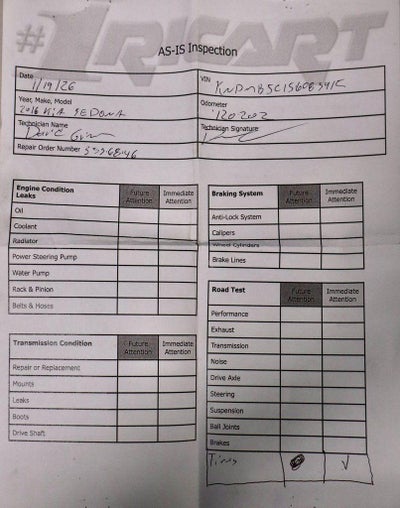 #1RICART
AS-IS Inspection
Date 1/19/26
VIN
Year, Make, Model 2016 KIA SEDONA
Odometer 120202
Technician Name
Technician Signature
Repair Order Number
Engine Condition Leaks Future Attention Immediate Attention
Oil
Coolant
Radiator
Power Steering Pump
Water Pump
Rack & Pinion
Belts & Hoses
Transmission Condition Future Attention Immediate Attention
Repair or Replacement
Mounts
Leaks
Boots
Drive Shaft
Braking System Future Attention Immediate Attention
Anti-Lock System
Calipers
Wheel Cylinders
Brake Lines
Road Test Future Attention Immediate Attention
Performance
Exhaust
Transmission
Noise
Drive Axle
Steering
Suspension
Ball Joints
Brakes
Tires